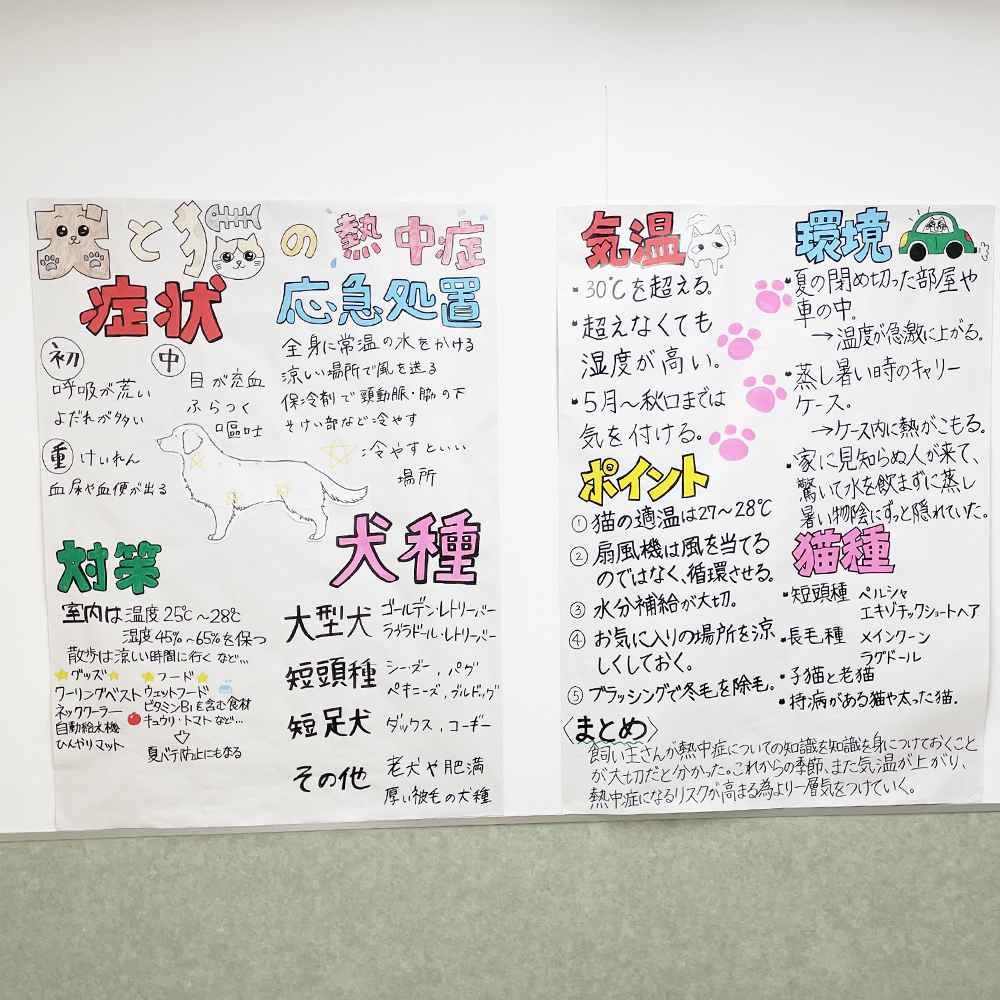 犬と猫の熱中症
症状
初
呼吸が荒い
よだれが多い
中
目が充血
ふらつく
嘔吐
重 けいれん
血尿や血便が出る
応急処置
全身に常温の水をかける
涼しい場所で風を送る
保冷剤で頸動脈・脇の下
そけい部など冷やす
:冷やすといい
場所
対策
室内は温度25℃〜28℃
湿度45%〜65%を保つ
散歩は涼しい時間に行く など…
グッズ
クーリングベスト
ネッククーラー
自動給水機
ひんやりマット
フード
ウェットフード
ビタミンB1を含む食材
キュウリ・トマトなど…
⇩
夏バテ防止にもなる
犬種
大型犬 ゴールデン・レトリーバー
ラブラドール・レトリーバー
短頭種 シーズー、パグ
ペキニーズ、ブルドッグ
短足犬 ダックス、コーギー
その他 老犬や肥満
厚い被毛の犬種
気温
・30℃を超える。
・超えなくても
湿度が高い。
・5月〜秋口までは
気を付ける。
ポイント
① 猫の適温は27〜28℃
② 扇風機は風を当てる
のではなく、循環させる。
③ 水分補給が大切。
④ お気に入りの場所を涼
しくしておく。
⑤ ブラッシングで冬毛を除毛。
環境
・夏の閉め切った部屋や
車の中。
→温度が急激に上がる。
・蒸し暑い時のキャリー
ケース。
→ケース内に熱がこもる。
・家に見知らぬ人が来て、
驚いて水を飲まずに蒸し
暑い物陰にずっと隠れていた。
猫種
・短頭種 ペルシャ
エキゾチックショートヘア
・長毛種 メインクーン
ラグドール
・子猫と老猫
・持病がある猫や太った猫。
〈まとめ〉
飼い主さんが熱中症についての知識を知識を身につけておくこと
が大切だと分かった。これからの季節、また気温が上がり、
熱中症になるリスクが高まる為より一層気をつけていく。